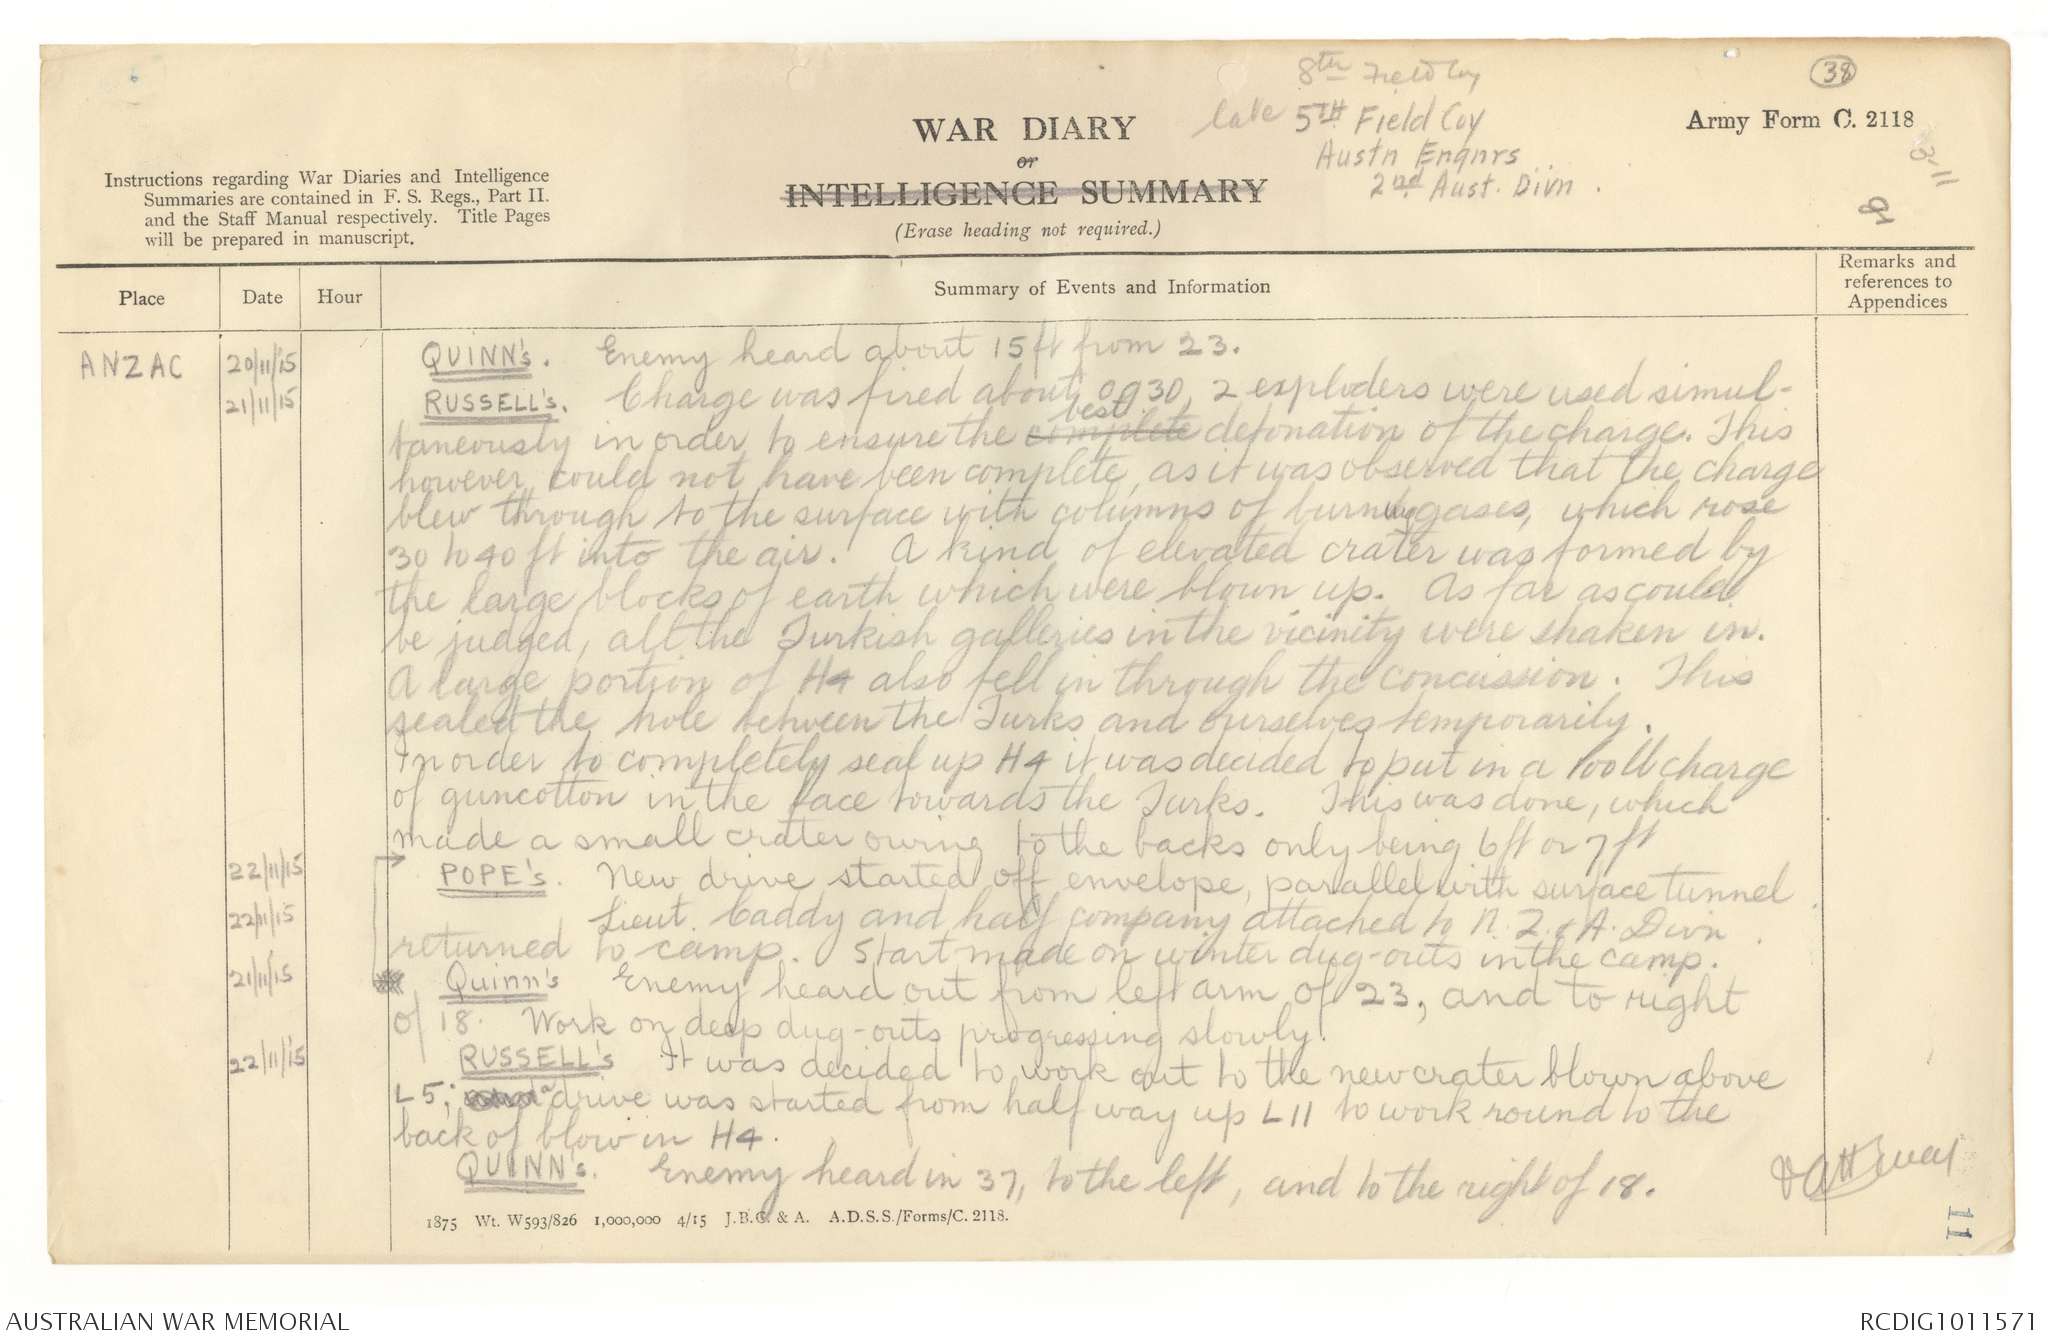 8th Field Coy
38
late 5TH Field Coy
Austn Engnrs
2nd Aust. Divn.
WAR DIARY
or
INTELLIGENCE SUMMARY
(Erase heading not required.)
Army Form C. 2118
Instructions regarding War Diaries and Intelligence
Summaries are contained in F. S. Regs., Part II.
and the Staff Manual respectively. Title Pages
will be prepared in manuscript.
Place
Date
Hour
Summary of Events and Information
Remarks and
references to
Appendices
ANZAC 20/11/15 QUINN's. Enemy heard about 15ft from 23.
21/11/15 RUSSELL's. Charge was fired about 0930, 2 exploders were used simul-
taneously in order to ensure the complete best detonation of the charge. This
however could not have been complete, as it was observed that the charge
blew through to the surface with columns of burning gases, which rose
30 to 40 ft into the air. A kind of elevated crater was formed by
the large blocks of earth which were blown up. As far as could
be judged, all the Turkish galleries in the vicinity were shaken in.
A large portion of H4 also fell in through the concussion. This
sealed the hole between the Turks and ourselves temporarily.
In order to completely seal up H4 it was decided to put in a 100 lb charge
of guncotton in the face towards the Turks. This was done, which
made a small crater owing to the backs only being 6ft or 7ft
22/11/15 POPE's. New drive started off envelope, parallel with surface tunnel.
22/11/15 Lieut. Caddy and half company attached to N.Z. & A. Divn
returned to camp. Start made on winter dug-outs in the camp.
21/11/15 Quinn's Enemy heard out from left arm of 23, and to right
of 18. Work on deep dug-outs progressing slowly.
22/11/15 RUSSELL's It was decided to work out to the new crater blown above
L5; a drive was started from half way up L11 to work round to the
back of blow in H4.
QUINN's. Enemy heard in 37, to the left, and to the right of 18.
1875 Wt. W593/826 1,000,000 4/15 J.B.C. & A. A.D.S.S./Forms/C. 2118.
11
AUSTRALIAN WAR MEMORIAL
RCDIG1011571